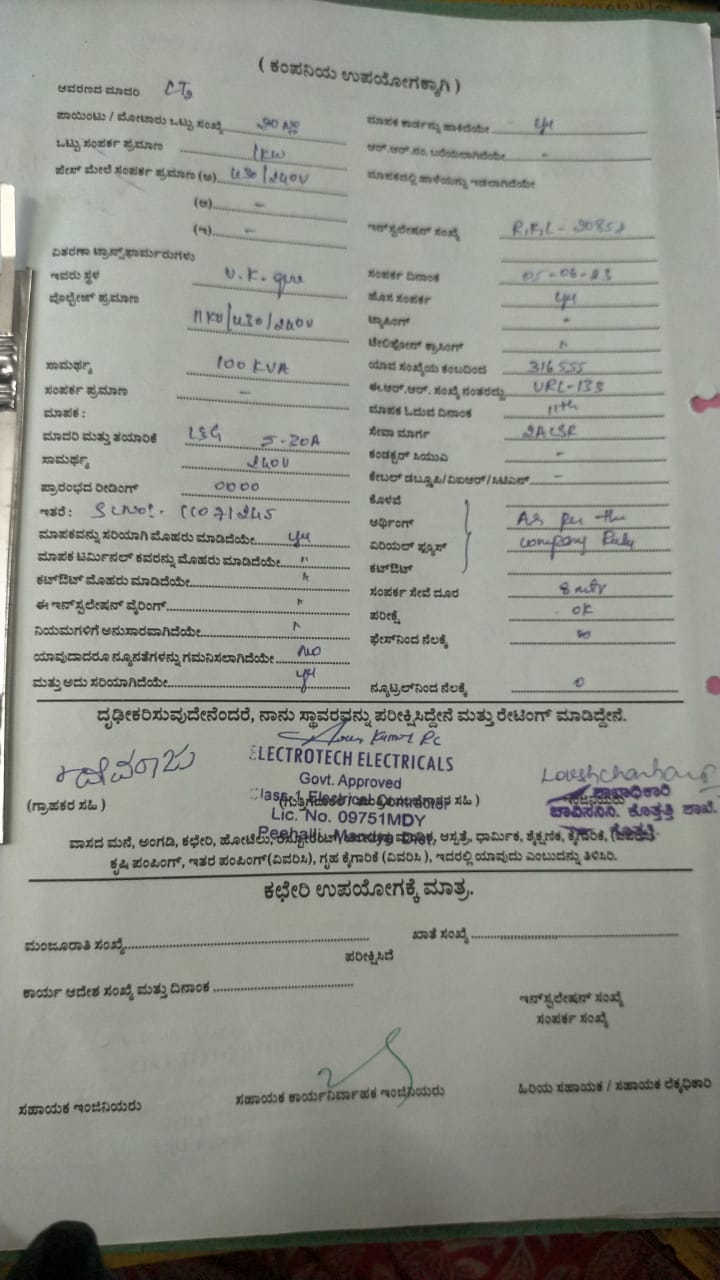 ( ಕಂಪನಿಯ ಉಪಯೋಗಕ್ಕಾಗಿ )
ಆವರಣದ ಮಾದರಿ
ಪಾಯಿಂಟು / ಮೋಟಾರು ಒಟ್ಟು ಸಂಖ್ಯೆ
ಒಟ್ಟು ಸಂಪರ್ಕ ಪ್ರಮಾಣ 1KW
ಪೇಸ್ ಮೇಲೆ ಸಂಪರ್ಕ ಪ್ರಮಾಣ (ಅ) 430/240V
(ಆ) -
(ಇ) -
ವಿತರಣಾ ಟ್ರಾನ್ಸ್‌ಫಾರ್ಮರುಗಳು
ಇವರು ಸ್ಥಳ
ವೊಲ್ಟೇಜ್ ಪ್ರಮಾಣ
11KV/430/240V
ಸಾಮರ್ಥ್ಯ 100 KVA
ಸಂಪರ್ಕ ಪ್ರಮಾಣ -
ಮಾಪಕ :
ಮಾದರಿ ಮತ್ತು ತಯಾರಿಕೆ L&G 5-20A
ಸಾಮರ್ಥ್ಯ 240V
ಪ್ರಾರಂಭದ ರೀಡಿಂಗ್ 0000
ಇತರೆ :
ಮಾಪಕವನ್ನು ಸರಿಯಾಗಿ ಮೊಹರು ಮಾಡಿದೆಯೇ yes
ಮಾಪಕ ಟರ್ಮಿನಲ್ ಕವರನ್ನು ಮೊಹರು ಮಾಡಿದೆಯೇ "
ಕಟ್‌ಔಟ್ ಮೊಹರು ಮಾಡಿದೆಯೇ "
ಈ ಇನ್‌ಸ್ಟಲೇಷನ್ ವೈರಿಂಗ್ "
ನಿಯಮಗಳಿಗೆ ಅನುಸಾರವಾಗಿದೆಯೇ "
ಯಾವುದಾದರೂ ನ್ಯೂನತೆಗಳನ್ನು ಗಮನಿಸಲಾಗಿದೆಯೇ NO
ಮತ್ತು ಅದು ಸರಿಯಾಗಿದೆಯೇ yes
ಮಾಪಕ ಕಾರ್ಡನ್ನು ಹಾಕಿದೆಯೇ yes
ಆರ್.ಆರ್.ನಂ. ಬರೆಯಲಾಗಿದೆಯೇ -
ಮಾಪಕದಲ್ಲಿ ಹಾಳೆಯನ್ನು ಇಡಲಾಗಿದೆಯೇ
ಇನ್‌ಸ್ಟಲೇಷನ್ ಸಂಖ್ಯೆ
ಸಂಪರ್ಕ ದಿನಾಂಕ 05-06-23
ಹೊಸ ಸಂಪರ್ಕ yes
ಟ್ಯಾಪಿಂಗ್ "
ಟೆಲಿಫೋನ್ ಕ್ರಾಸಿಂಗ್ "
ಯಾವ ಸಂಖ್ಯೆಯ ಕಂಬದಿಂದ 316555
ಈ.ಆರ್.ಆರ್. ಸಂಖ್ಯೆ ನಂತರದ್ದು URL-133
ಮಾಪಕ ಓದುವ ದಿನಾಂಕ 11th
ಸೇವಾ ಮಾರ್ಗ 2ACSR
ಕಂಡಕ್ಟರ್ ಸಿಯುವಿ -
ಕೇಬಲ್ ಡಬ್ಲ್ಯೂಪಿ/ವಿಐಆರ್/ಸಿಟಿಎಸ್ -
ಕೊಳವೆ
ಅರ್ಥಿಂಗ್ As per the
ಏರಿಯಲ್ ಫ್ಯೂಸ್ company Rule
ಕಟ್‌ಔಟ್
ಸಂಪರ್ಕ ಸೇವೆ ದೂರ 8 mtr
ಪರೀಕ್ಷೆ OK
ಫೇಸ್‌ನಿಂದ ನೆಲಕ್ಕೆ
ನ್ಯೂಟ್ರಲ್‌ನಿಂದ ನೆಲಕ್ಕೆ 0
ದೃಢೀಕರಿಸುವುದೇನೆಂದರೆ, ನಾನು ಸ್ಥಾವರವನ್ನು ಪರೀಕ್ಷಿಸಿದ್ದೇನೆ ಮತ್ತು ರೇಟಿಂಗ್ ಮಾಡಿದ್ದೇನೆ.
ELECTROTECH ELECTRICALS
Govt. Approved
Class-1 Electrical Contractor
Lic. No. 09751MDY
(ಗ್ರಾಹಕರ ಸಹಿ )
ಶಾಖಾಧಿಕಾರಿ
ಚಾವಿಸನಿನಿ. ಕೊತ್ತತ್ತಿ ಶಾಖೆ.
ಕೊತ್ತತ್ತಿ.
ವಾಸದ ಮನೆ, ಅಂಗಡಿ, ಕಛೇರಿ, ಹೋಟೆಲು, ಆಸ್ಪತ್ರೆ, ಧಾರ್ಮಿಕ, ಶೈಕ್ಷಣಿಕ, ಕೈಗಾರಿಕೆ,
ಕೃಷಿ ಪಂಪಿಂಗ್, ಇತರ ಪಂಪಿಂಗ್(ವಿವರಿಸಿ), ಗೃಹ ಕೈಗಾರಿಕೆ (ವಿವರಿಸಿ ), ಇದರಲ್ಲಿ ಯಾವುದು ಎಂಬುದನ್ನು ತಿಳಿಸಿರಿ.
ಕಛೇರಿ ಉಪಯೋಗಕ್ಕೆ ಮಾತ್ರ.
ಮಂಜೂರಾತಿ ಸಂಖ್ಯೆ ಖಾತೆ ಸಂಖ್ಯೆ
ಪರೀಕ್ಷಿಸಿದೆ
ಕಾರ್ಯ ಆದೇಶ ಸಂಖ್ಯೆ ಮತ್ತು ದಿನಾಂಕ
ಇನ್‌ಸ್ಟಲೇಷನ್ ಸಂಖ್ಯೆ
ಸಂಪರ್ಕ ಸಂಖ್ಯೆ
ಸಹಾಯಕ ಇಂಜಿನಿಯರು ಸಹಾಯಕ ಕಾರ್ಯನಿರ್ವಾಹಕ ಇಂಜಿನಿಯರು ಹಿರಿಯ ಸಹಾಯಕ / ಸಹಾಯಕ ಲೆಕ್ಕಧಿಕಾರಿ